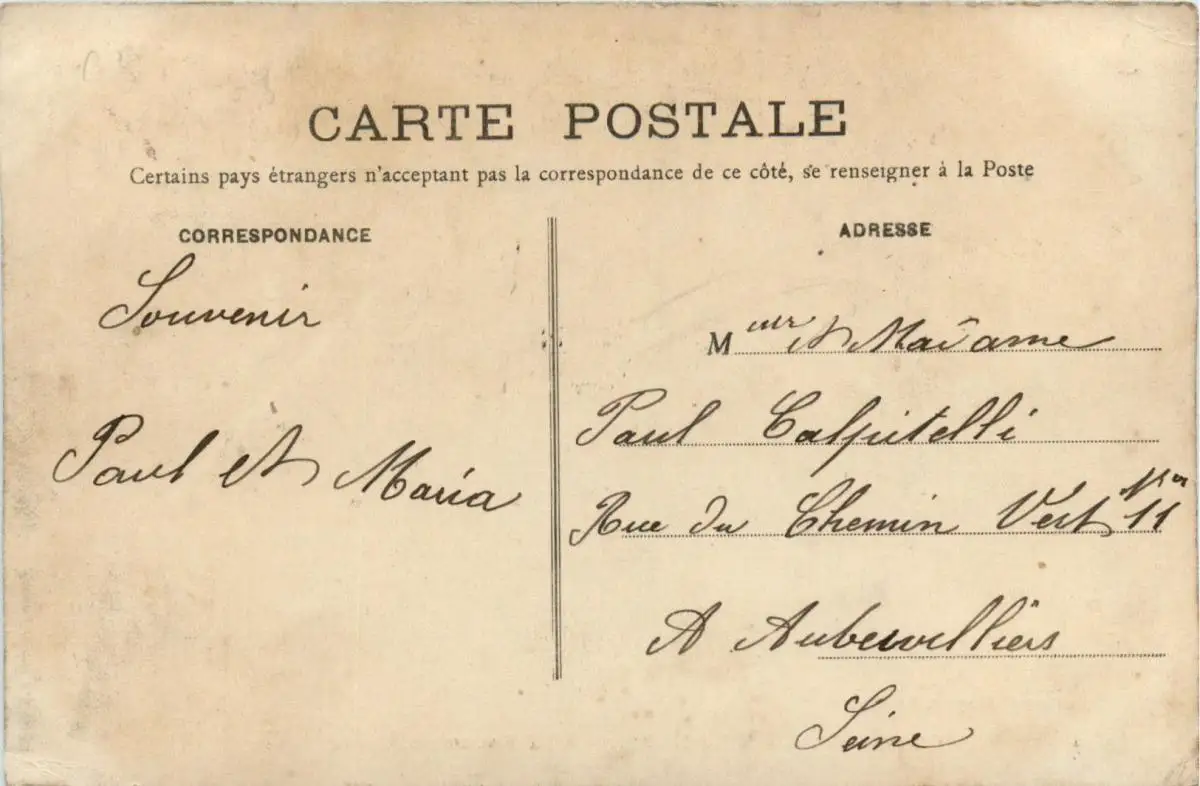 CARTE POSTALE
Certains pays étrangers n'acceptant pas la correspondance de ce côté, se renseigner à la Poste
CORRESPONDANCE
Souvenir
Paul et Maria
ADRESSE
Meur et Madame
Paul Calpitelli
Rue du Chemin Vert 11
A Aubervilliers
Seine